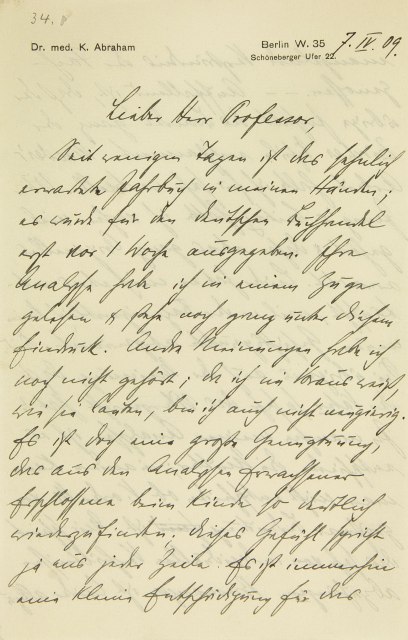 34.
Dr. med. K. Abraham
Berlin W. 35
Schöneberger Ufer 22.
7. IV. 09.
Lieber Herr Professor,
Seit wenigen Tagen ist das sehnlich
erwartete Jahrbuch in meinen Händen;
es wurde für den deutschen Buchhandel
erst vor 1 Woche ausgegeben. Ihre
Analyse habe ich in einem Zuge
gelesen & stehe noch ganz unter diesem
Eindruck. Andre Meinungen habe ich
noch nicht gehört; da ich im Voraus weiß,
wie sie lauten, bin ich auch nicht neugierig.
Es ist doch eine große Genugtuung,
das aus den Analysen Erwachsener
Erschlossene beim Kinde so deutlich
wiederzufinden; dieses Gefühl spricht
ja aus jeder Zeile. Es ist immerhin
eine kleine Entschädigung für das